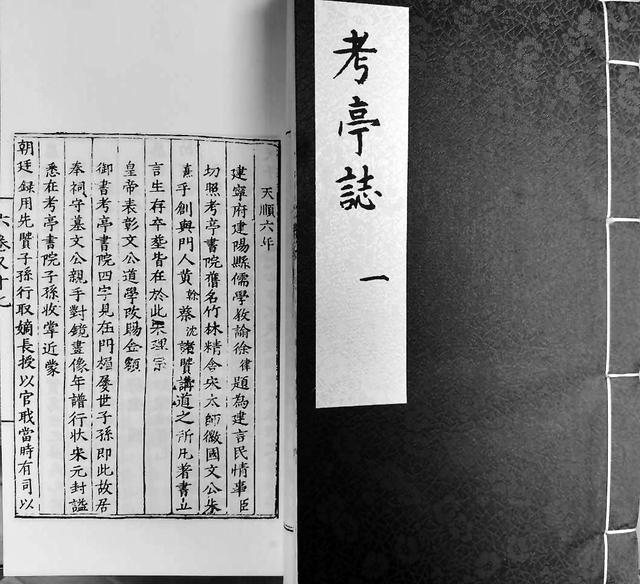 考亭誌
一
天順六年
建寧府建陽縣儒學教諭徐律題為建言民情事臣
切照考亭書院舊名竹林精舍宋太師徽國文公朱
熹手創與門人黃榦蔡沈諸賢講道之所凡著書立
言生存卒塟皆在於此宋理宗
皇帝表彰文公道學改賜金額
御書考亭書院四字見在門楣屢世子孫即此故居
奉祠守墓文公親手對鏡畫像年譜行狀宋元封謚
悉在考亭書院子孫收掌近蒙
朝廷録用先賢子孫行取嫡長授以官戢當時有司以